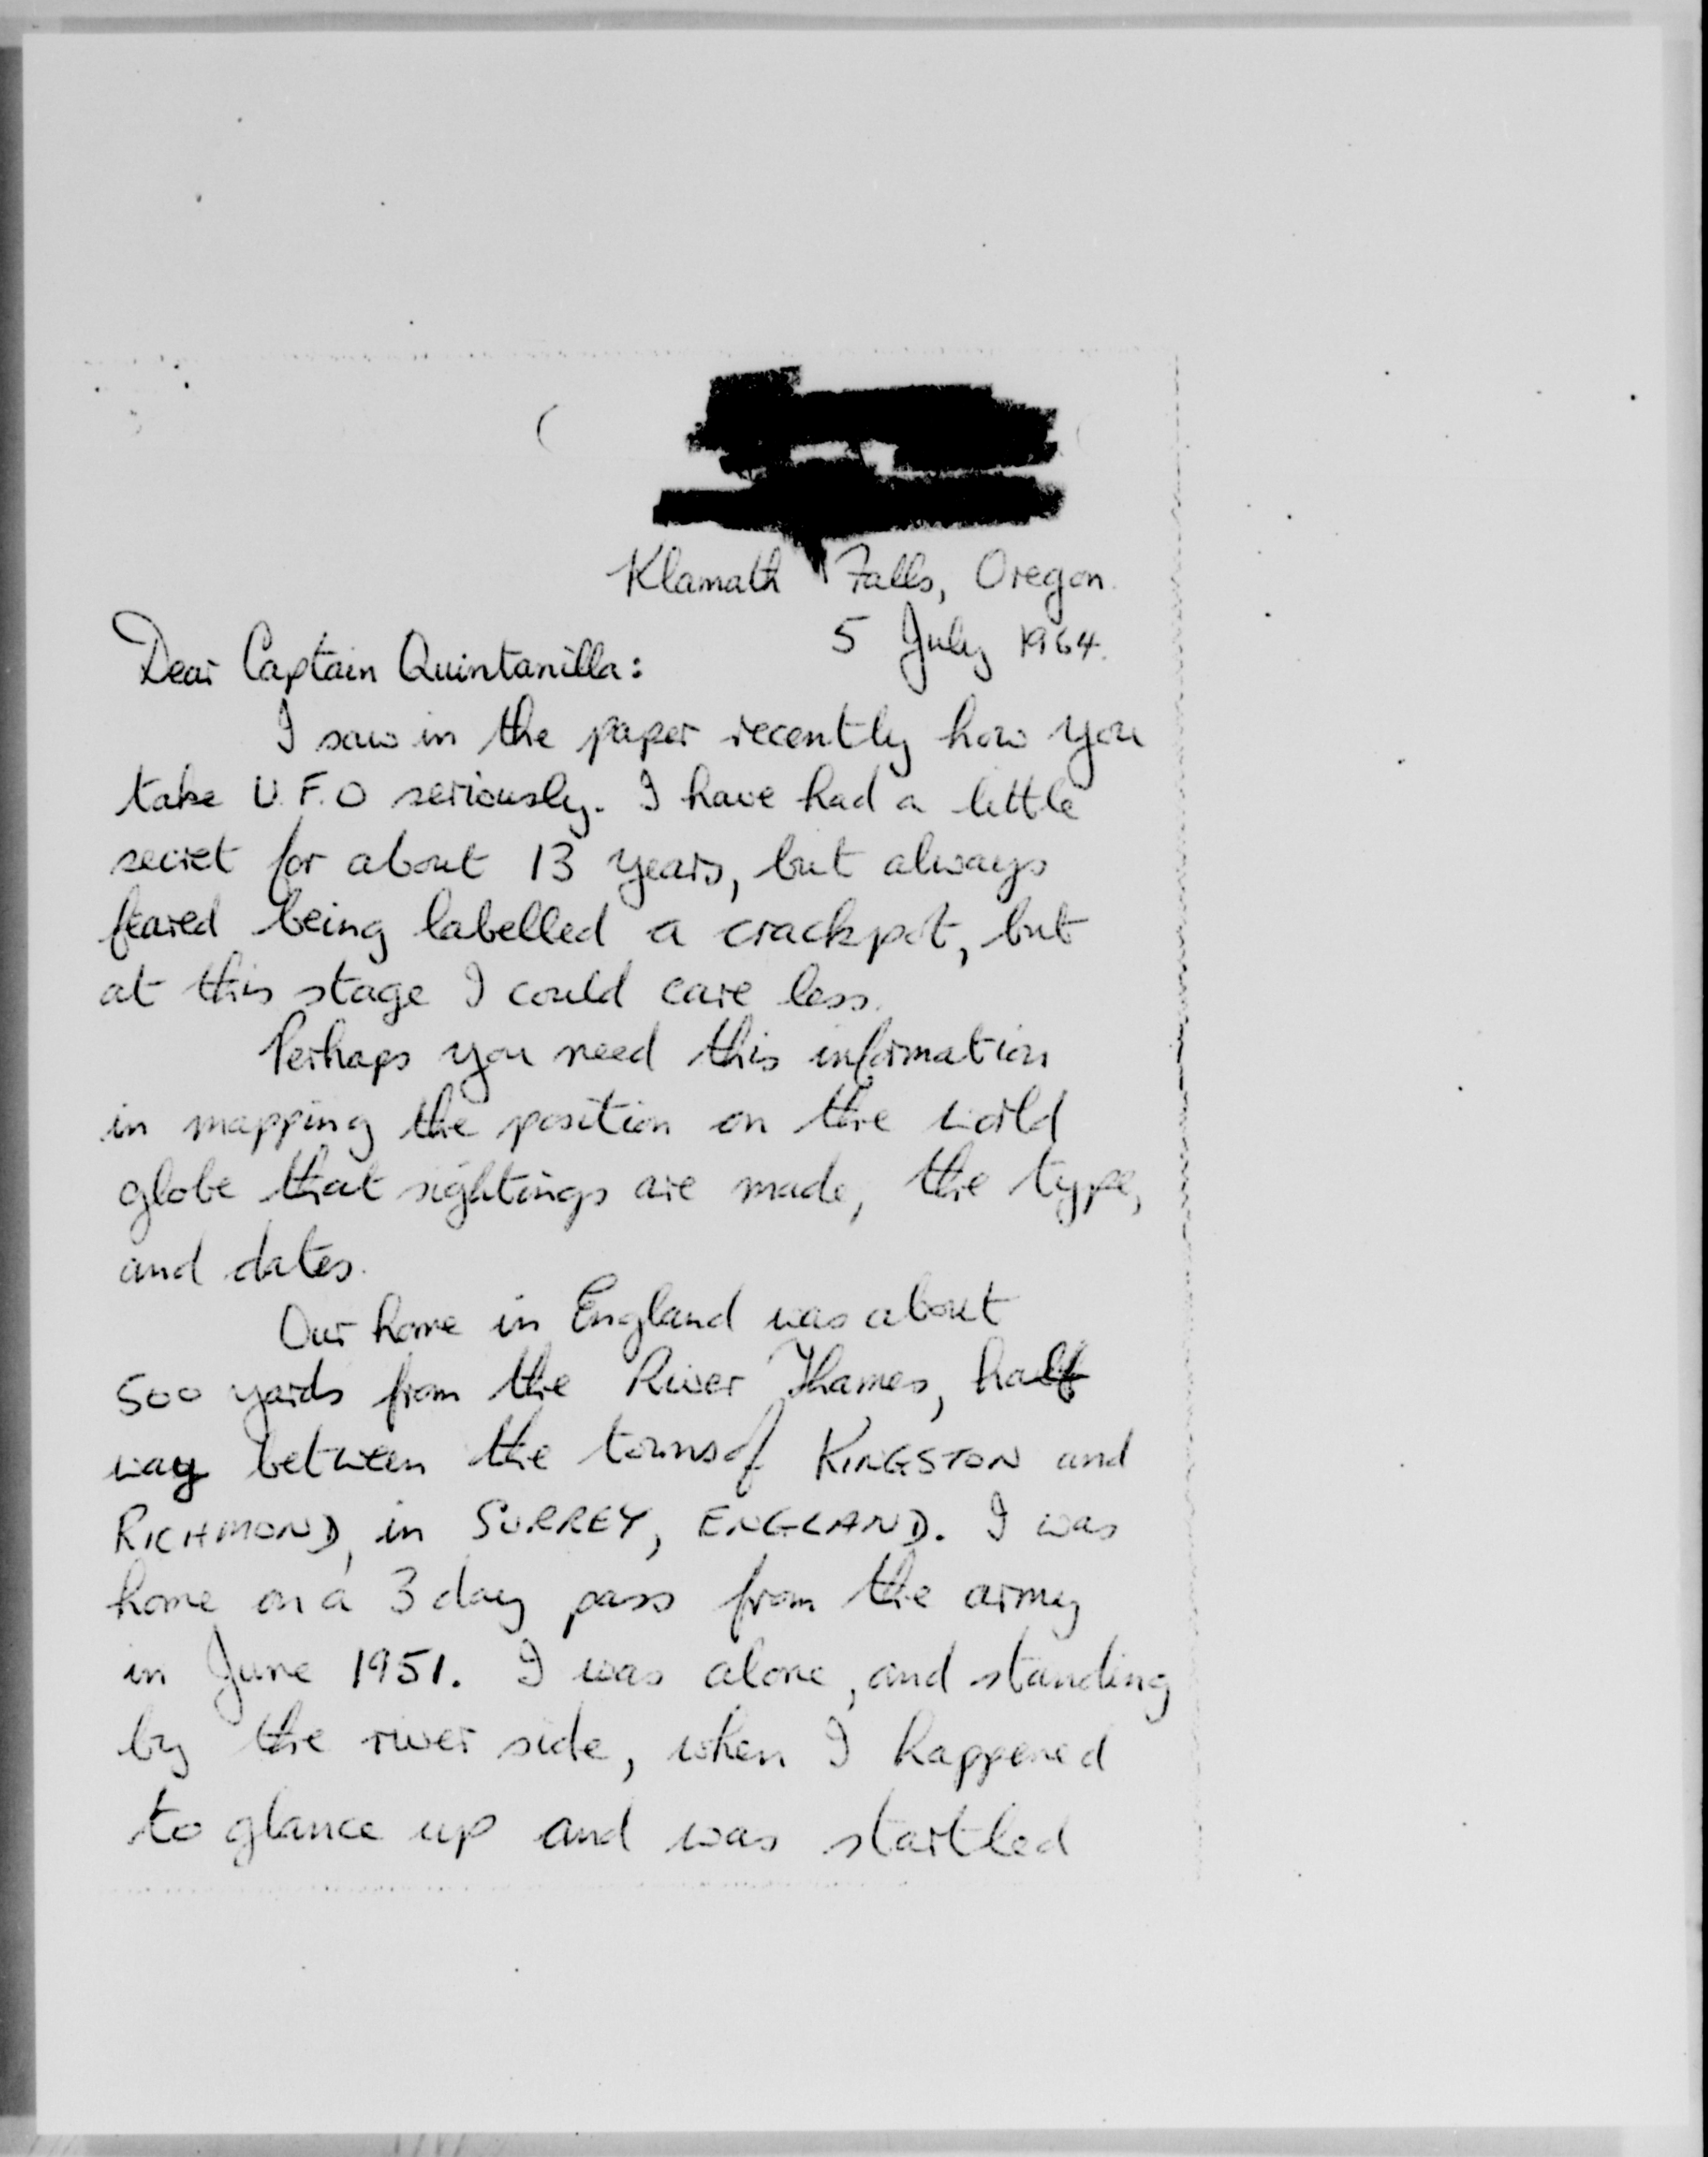 Klamath Falls, Oregon.
5 July 1964.
Dear Captain Quintanilla:
I saw in the paper recently how you
take U.F.O seriously. I have had a little
secret for about 13 years, but always
feared being labelled a crackpot, but
at this stage I could care less.
Perhaps you need this information
in mapping the position on the world
globe that sightings are made, the type,
and dates.
Our home in England was about
500 yards from the River Thames, half
way between the towns of KINGSTON and
RICHMOND, in SURREY, ENGLAND. I was
home on a 3 day pass from the army
in June 1951. I was alone, and standing
by the river side, when I happened
to glance up and was startled